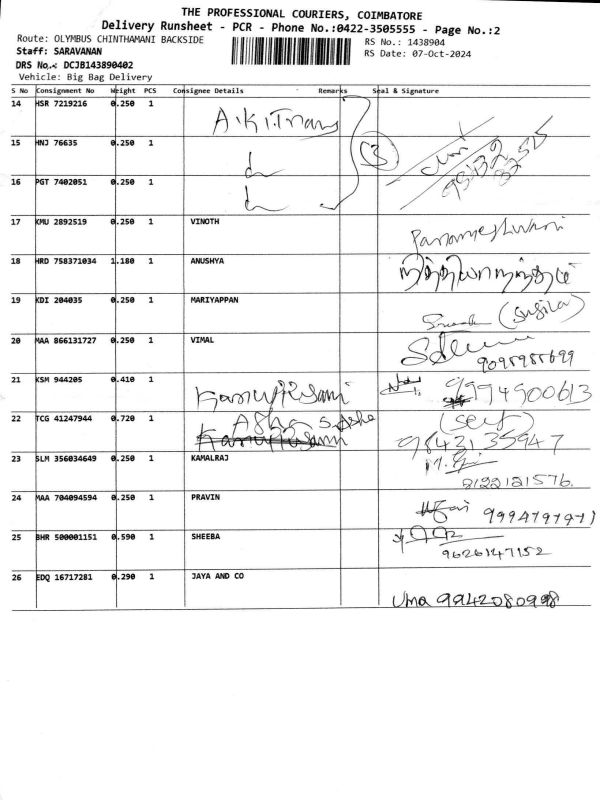 THE PROFESSIONAL COURIERS, COIMBATORE
Delivery Runsheet - PCR - Phone No.:0422-3505555 - Page No.:2
Route: OLYMBUS CHINTHAMANI BACKSIDE
RS No.: 1438904
Staff: SARAVANAN
RS Date: 07-Oct-2024
DRS No.: DCJB143890402
Vehicle: Big Bag Delivery
S No Consignment No Weight PCS Consignee Details Remarks Seal & Signature
14 HSR 7219216 0.250 1
3
15 HNJ 76635 0.250 1
16 PGT 7402051 0.250 1
17 KMU 2892519 0.250 1 VINOTH Parameshwari
18 HRD 758371034 1.180 1 ANUSHYA
19 KDI 204035 0.250 1 MARIYAPPAN (Sugila)
20 MAA 866131727 0.250 1 VIMAL
9095985699
21 KSM 944205 0.410 1 9994900613
22 TCG 41247944 0.720 1 Asha (self)
9843135947
23 SLM 356034649 0.250 1 KAMALRAJ
9122121576.
24 MAA 704094594 0.250 1 PRAVIN
25 BHR 500001151 0.590 1 SHEEBA
9626147152
26 EDQ 16717281 0.290 1 JAYA AND CO
Uma 9942080998